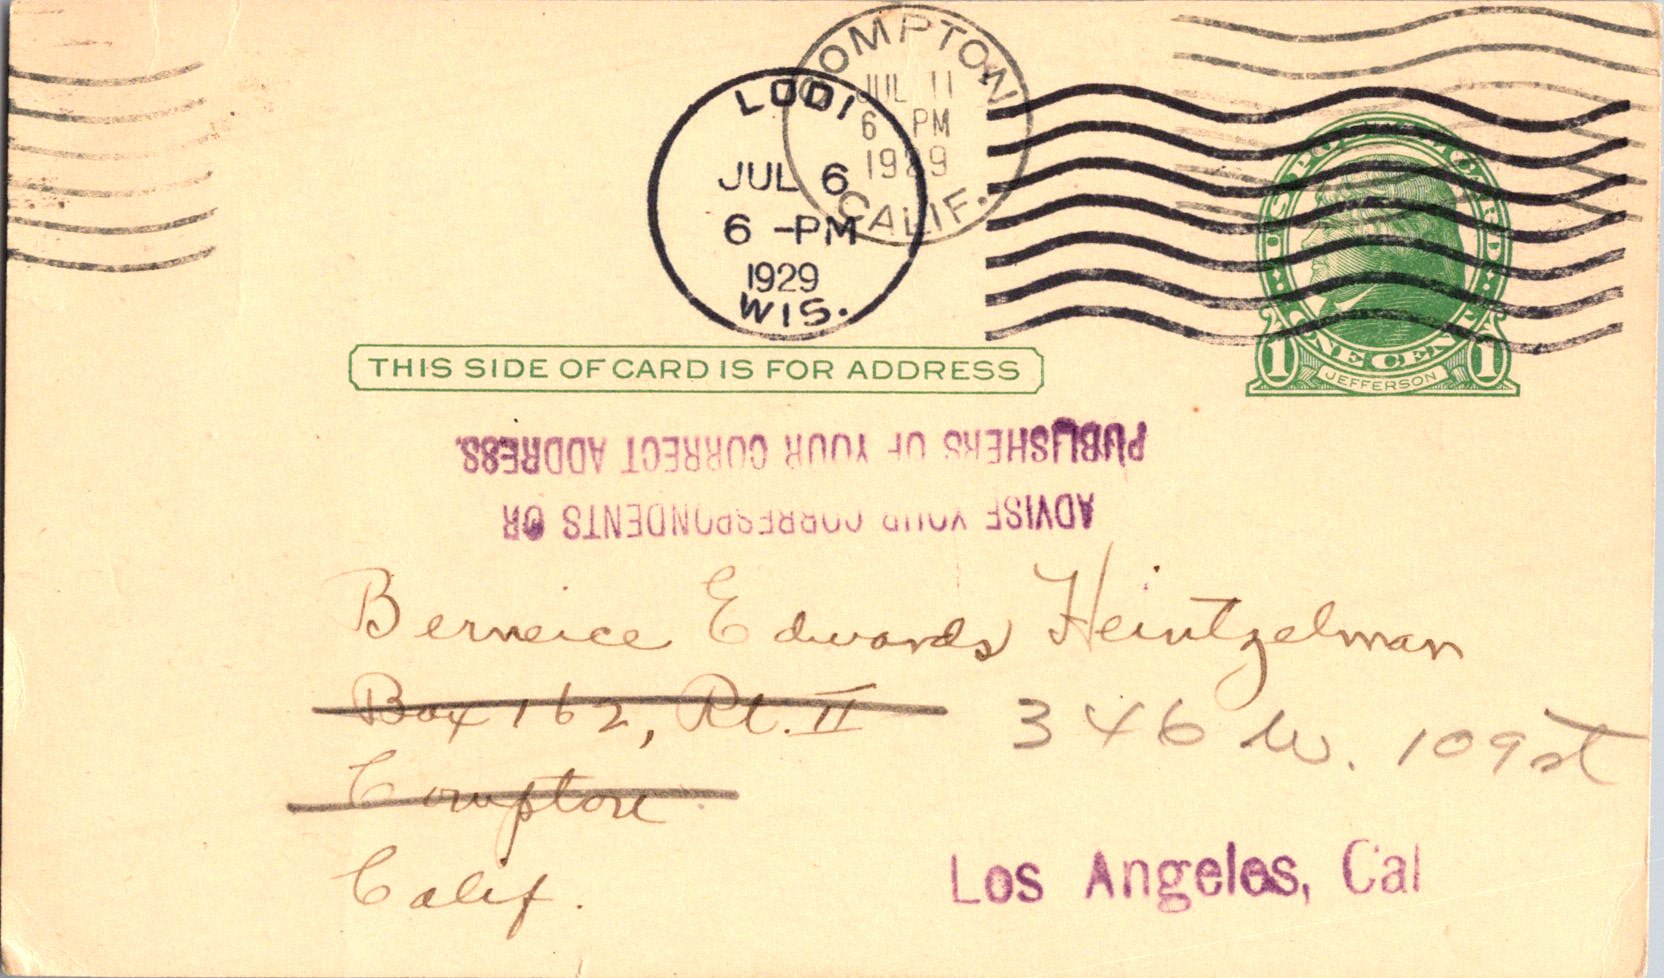 COMPTON
JUL 11
6 PM
1929
CALIF.
LODI
JUL 6
6 -PM
1929
WIS.
U.S. POSTAL CARD
ONE CENT
1 JEFFERSON 1
THIS SIDE OF CARD IS FOR ADDRESS
ADVISE YOUR CORRESPONDENTS OR
PUBLISHERS OF YOUR CORRECT ADDRESS.
Berneice Edwards Heintzelman
Box 162, Rt. II
346 W. 109 st
Compton
Calif.
Los Angeles, Cal